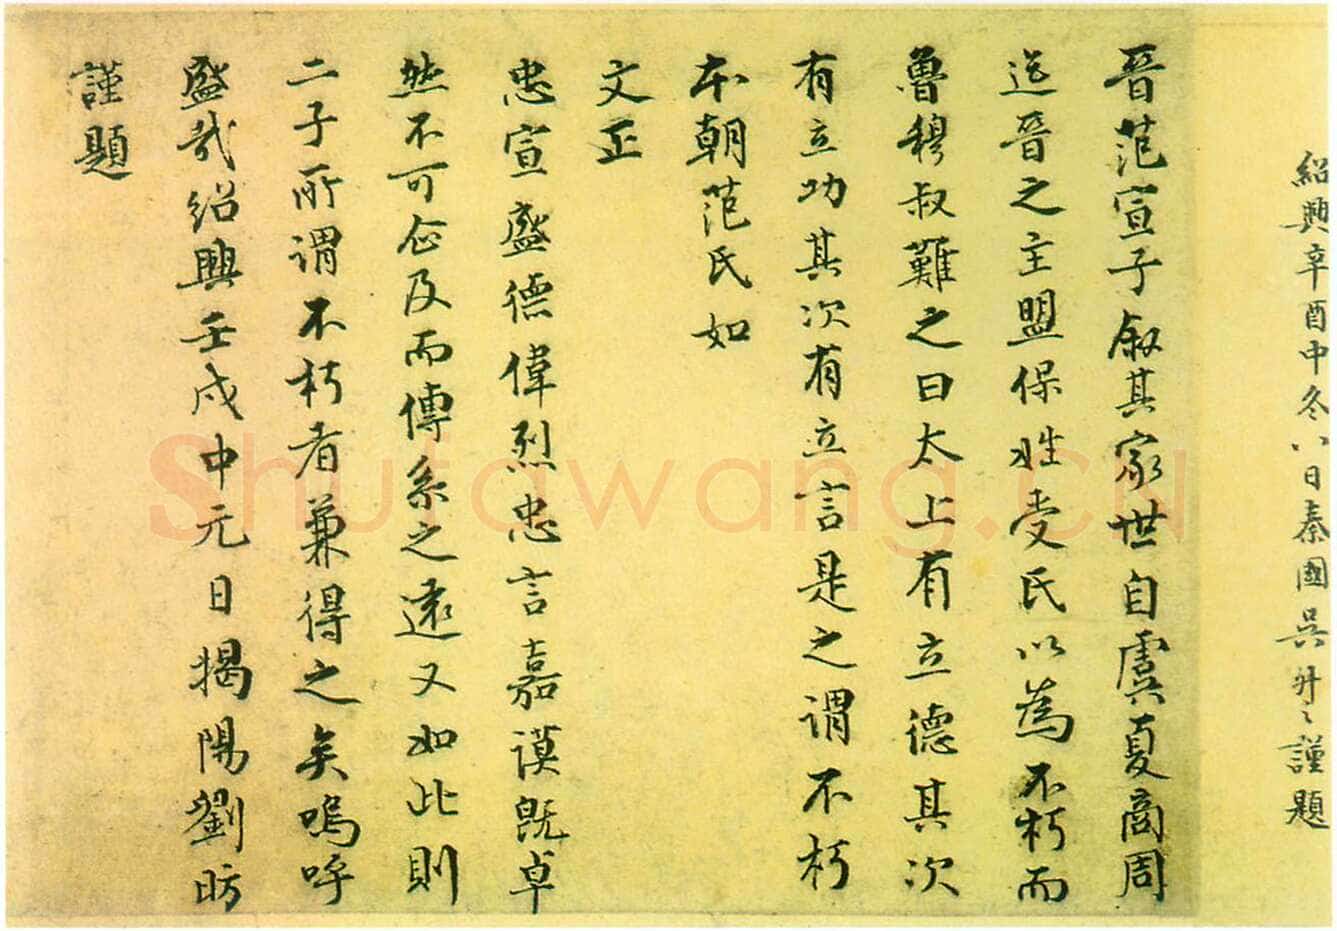 紹興辛酉中冬八日秦國吳升〻謹題
晉范宣子叙其家世自虞夏商周
迄晉之主盟保姓受氏以為不朽而
魯穆叔難之曰太上有立德其次
有立功其次有立言是之謂不朽
本朝范氏如
文正
忠宣盛德偉烈忠言嘉謨既卓
然不可企及而傳系之遠又如此則
二子所謂不朽者兼得之矣嗚呼
盛哉紹興壬戌中元日揭陽劉昉
謹題
Shufawang.CN